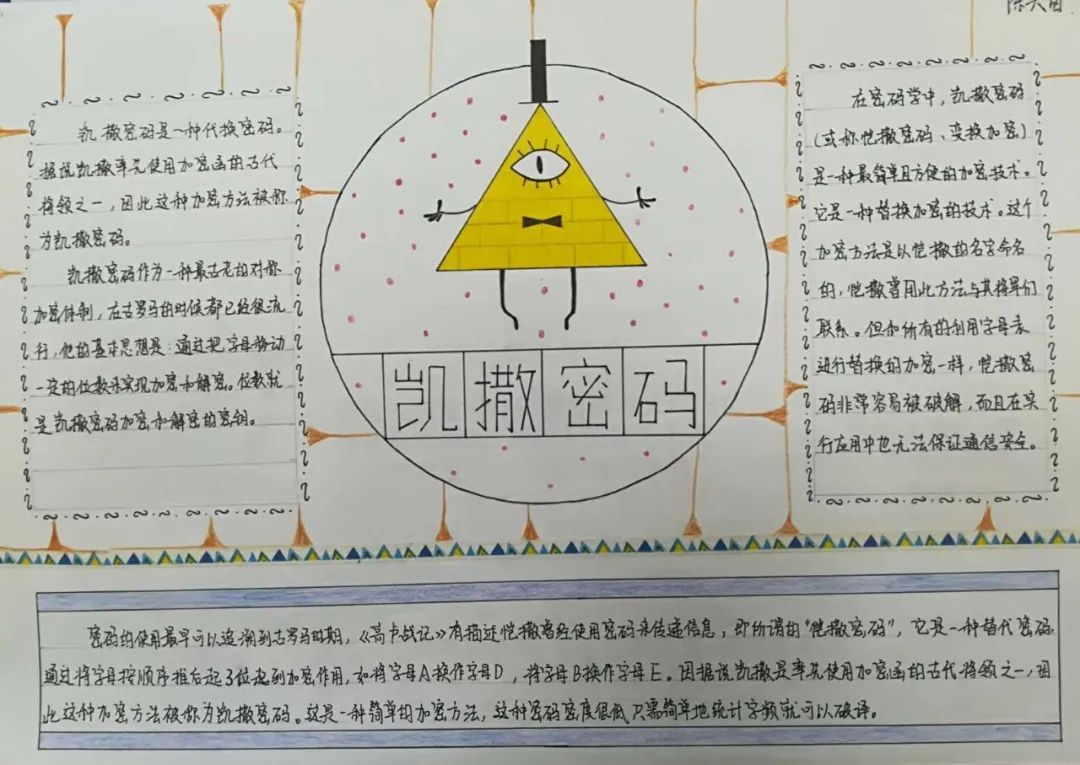 凯撒密码是一种代换密码。
据说凯撒率先使用加密函的古代
将领之一，因此这种加密方法被称
为凯撒密码。
凯撒密码作为一种最古老的对称
加密体制，在古罗马的时候都已经很流
行，他的基本思想是：通过把字母移动
一定的位数来实现加密和解密。位数就
是凯撒密码加密和解密的密钥。
凯撒密码
在密码学中，凯撒密码
（或称恺撒密码、变换加密）
是一种最简单且方便的加密技术。
它是一种替换加密的技术。这个
加密方法是以恺撒的名字命名
的，恺撒曾用此方法与其将军们
联系。但和所有的利用字母表
进行替换的加密一样，恺撒密
码非常容易被破解，而且在实
行应用中也无法保证通信安全。
密码的使用最早可以追溯到古罗马时期，《高卢战记》有描述恺撒曾经使用密码来传递信息，即所谓的“恺撒密码”，它是一种替代密码，
通过将字母按顺序推后起3位起到加密作用，如将字母A换作字母D，将字母B换作字母E。因据说凯撒是率先使用加密函的古代将领之一，因
此这种加密方法被称为凯撒密码。这是一种简单的加密方法，这种密码密度很低，只需简单地统计字频就可以破译。